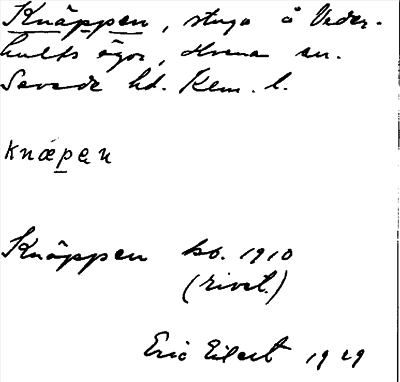 Knäppen, stuga å Veder-
hults ägor, Älvsna sn.
Sevede hd. Klm. l.
knæpen
Knäppen bb. 1910
(rivet.)
Eric Eilert 1929